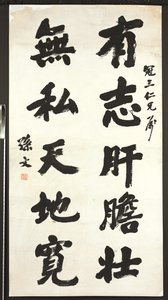 冠三仁兄
有志肝膽壯
無私天地寬
孫文